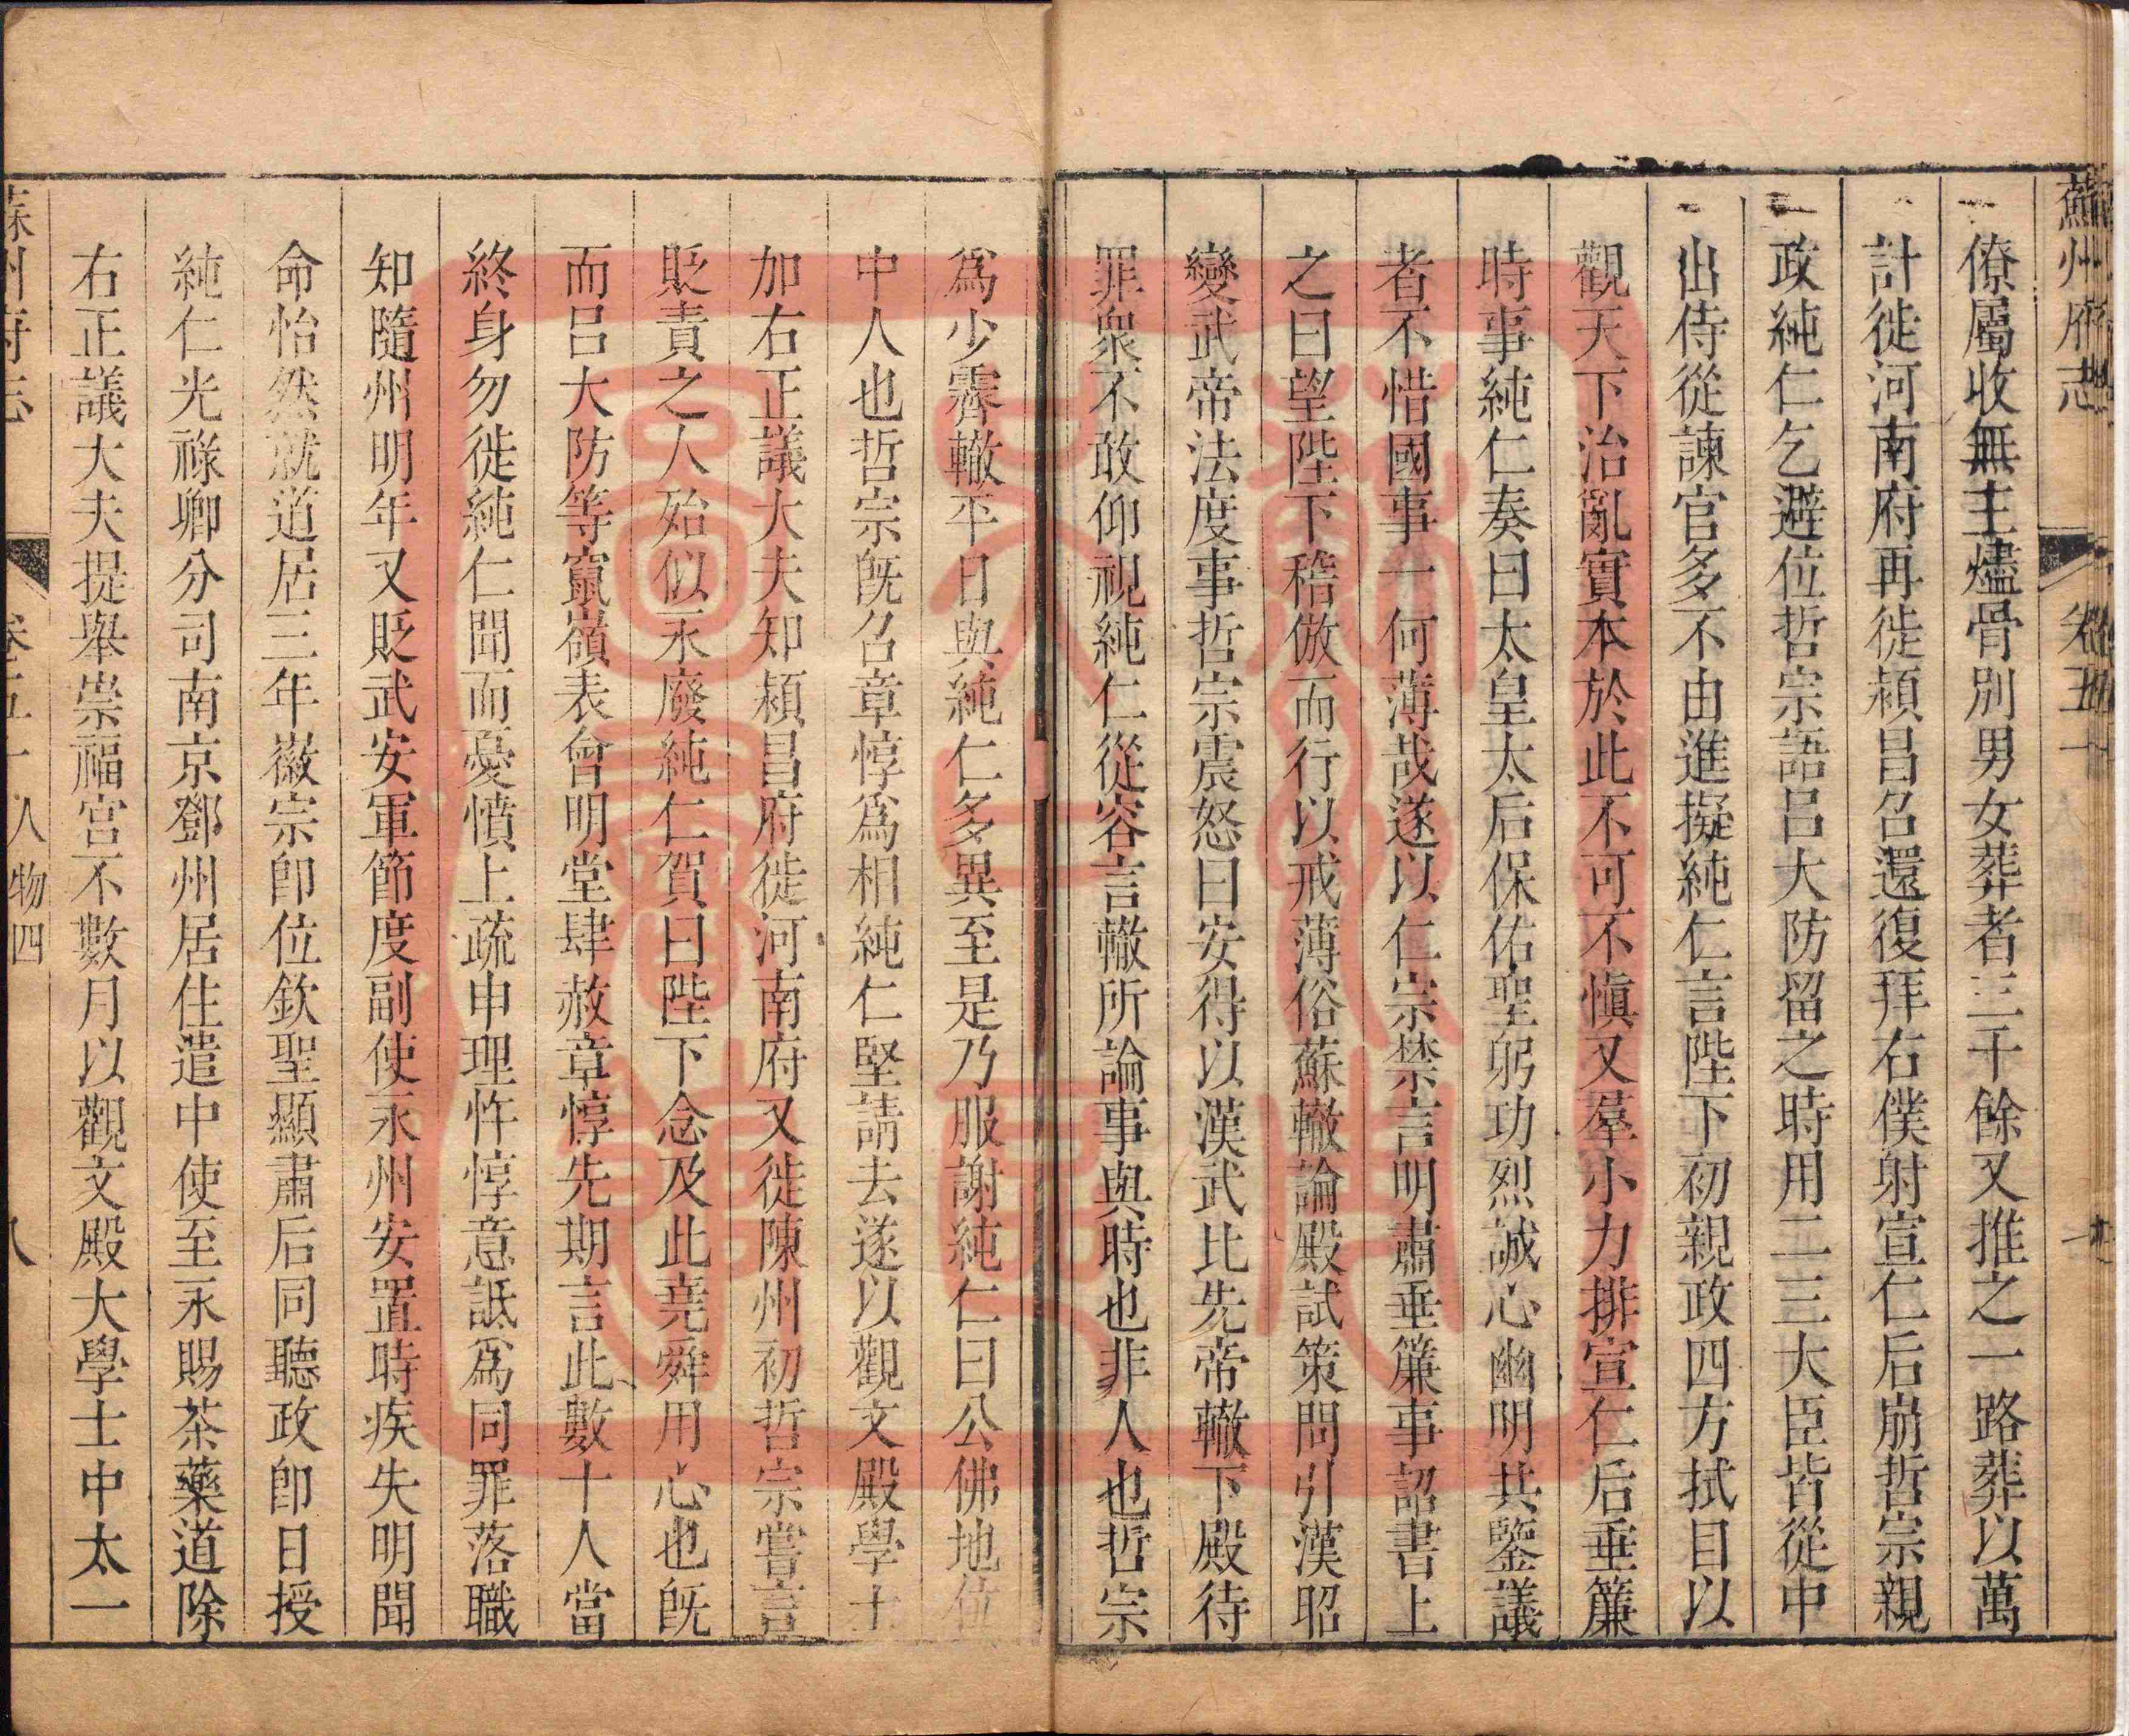 蘇州府志 卷五十
僚屬收無主燼骨別男女葬者三千餘又推之一路葬以萬
計徙河南府再徙潁昌召還復拜右僕射宣仁后崩哲宗親
政純仁乞避位哲宗語呂大防留之時用二三大臣皆從中
出侍從諫官多不由進擬純仁言陛下初親政四方拭目以
觀天下治亂實本於此不可不愼又羣小力排宣仁后垂簾
時事純仁奏曰太皇太后保佑聖躬功烈誠心幽明共鑒議
者不惜國事一何薄哉遂以仁宗禁言明肅垂簾事詔書上
之曰望陛下稽倣而行以戒薄俗蘇轍論殿試策問引漢昭
變武帝法度事哲宗震怒曰安得以漢武比先帝轍下殿待
罪衆不敢仰視純仁從容言轍所論事與時也非人也哲宗
爲少霽轍平日與純仁多異至是乃服謝純仁曰公佛地位
中人也哲宗旣召章惇爲相純仁堅請去遂以觀文殿學士
加右正議大夫知潁昌府徙河南府又徙陳州初哲宗嘗言
貶責之人殆似永廢純仁賀曰陛下念及此堯舜用心也旣
而呂大防等竄嶺表會明堂肆赦章惇先期言此數十人當
終身勿徙純仁聞而憂憤上疏申理忤惇意詆爲同罪落職
知隨州明年又貶武安軍節度副使永州安置時疾失明聞
命怡然就道居三年徽宗卽位欽聖顯肅后同聽政卽日授
純仁光祿卿分司南京鄧州居住遣中使至永賜茶藥道除
右正議大夫提舉崇福宮不數月以觀文殿大學士中太一
蘇州府志 卷五十 人物四 八